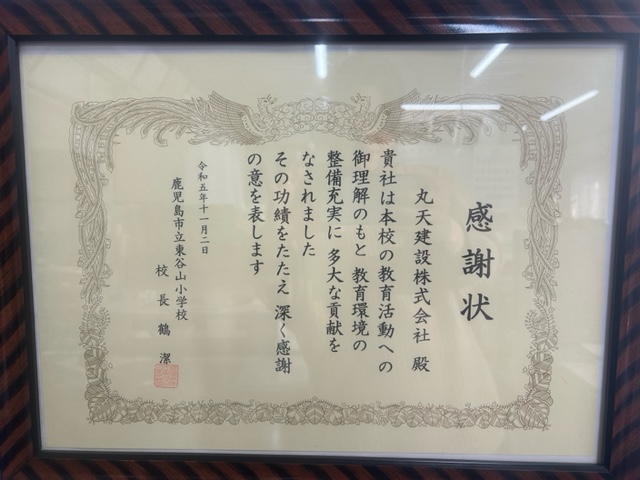 感謝状
丸天建設株式会社 殿
貴社は本校の教育活動への
御理解のもと 教育環境の
整備充実に 多大な貢献を
なされました
その功績をたたえ 深く感謝
の意を表します
令和五年十一月二日
鹿児島市立東谷山小学校
校長 鶴 潔